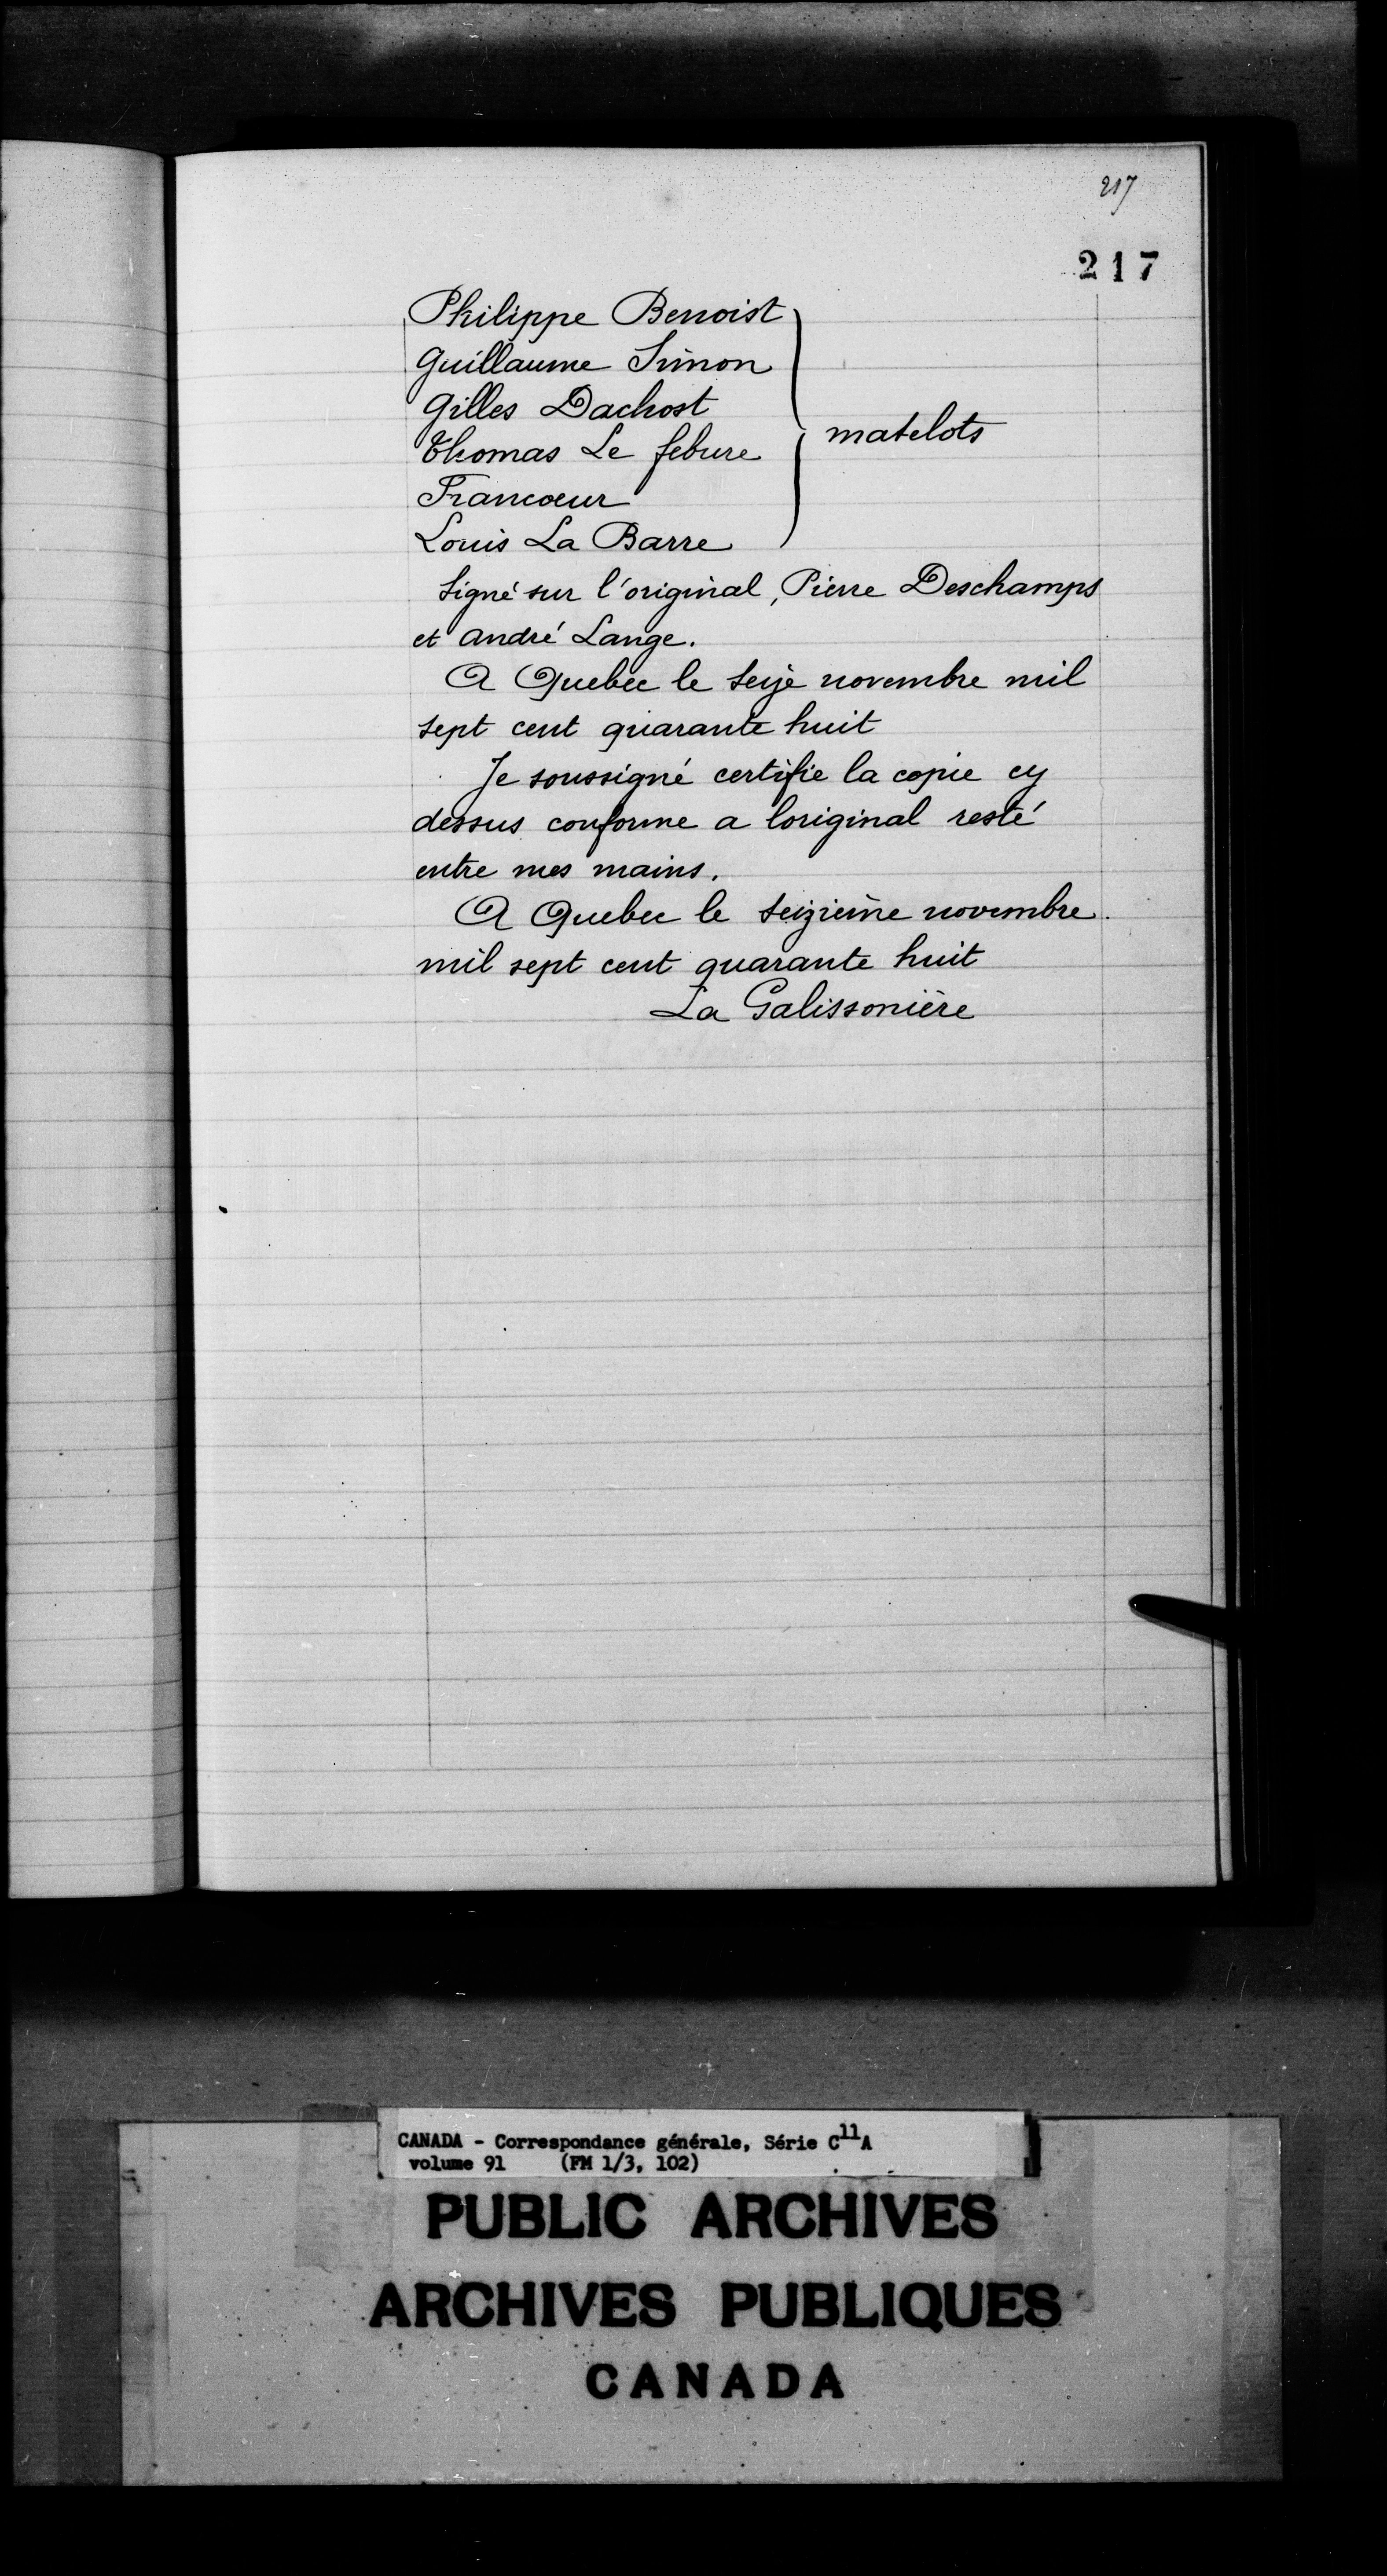 217
217
Philippe Benoist
Guillaume Simon
Gilles Dachost
Thomas Le febure
matelots
Francoeur
Louis La Barre
Signé sur l'original, Pierre Deschamps
et André Lange.
A Quebec le seize novembre mil
sept cent quarante huit
Je soussigné certifie la copie cy
dessus conforme a loriginal resté
entre mes mains.
A Quebec le seizième novembre
mil sept cent quarante huit
La Galissonière
CANADA - Correspondance générale, Série C11A
volume 91 (FM 1/3, 102)
PUBLIC ARCHIVES
ARCHIVES PUBLIQUES
CANADA